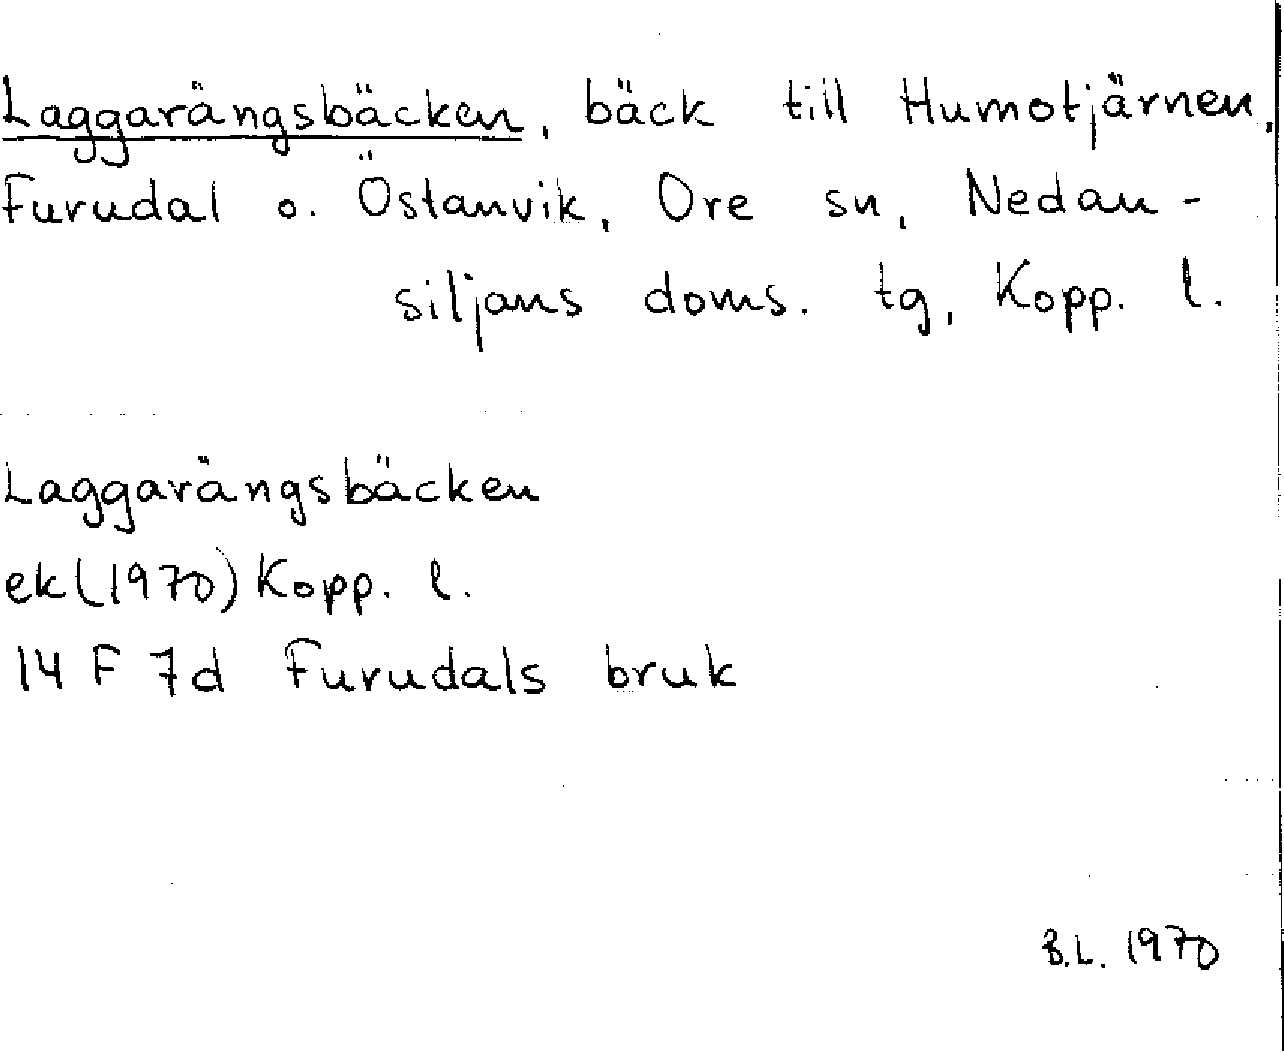 Laggarängsbäcken, bäck till Humotjärnen,
Furudal o. Östanvik, Ore sn, Nedan-
siljans doms. tg, Kopp. l.
Laggarängsbäcken
ek (1970) Kopp. l.
14 F 7d Furudals bruk
B.L. 1970